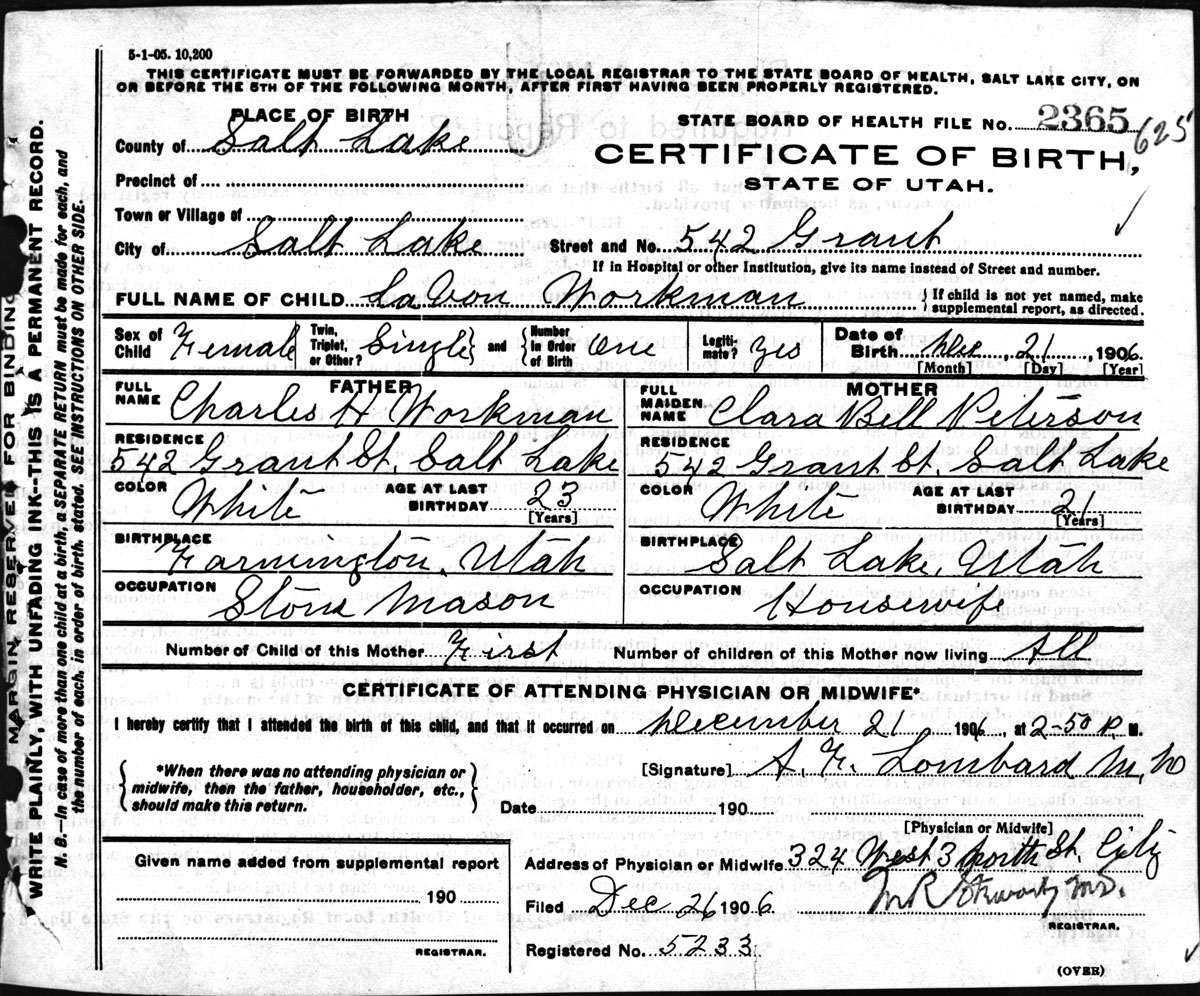 5-1-05. 10,200
THIS CERTIFICATE MUST BE FORWARDED BY THE LOCAL REGISTRAR TO THE STATE BOARD OF HEALTH, SALT LAKE CITY, ON
OR BEFORE THE 5TH OF THE FOLLOWING MONTH, AFTER FIRST HAVING BEEN PROPERLY REGISTERED.
PLACE OF BIRTH
STATE BOARD OF HEALTH FILE NO. 2365 625
County of Salt Lake
CERTIFICATE OF BIRTH,
STATE OF UTAH.
Precinct of
Town or Village of
City of Salt Lake Street and No. 542 Grant
If in Hospital or other Institution, give its name instead of Street and number.
FULL NAME OF CHILD LaVon Workman { If child is not yet named, make supplemental report, as directed.
Sex of Child Female Twin, Triplet, or Other? Single } and { Number in Order of Birth One Legiti-mate? Yes Date of Birth Dec, 21, 1906
[Month] [Day] [Year]
FATHER
FULL NAME Charles H Workman
RESIDENCE
542 Grant St. Salt Lake
COLOR White AGE AT LAST BIRTHDAY 23
[Years]
BIRTHPLACE
Farmington, Utah
OCCUPATION
Stone Mason
MOTHER
FULL MAIDEN NAME Clara Bell Peterson
RESIDENCE
542 Grant St. Salt Lake
COLOR White AGE AT LAST BIRTHDAY 21
[Years]
BIRTHPLACE
Salt Lake, Utah
OCCUPATION
Housewife
Number of Child of this Mother First Number of children of this Mother now living All
CERTIFICATE OF ATTENDING PHYSICIAN OR MIDWIFE*
I hereby certify that I attended the birth of this child, and that it occurred on December 21 1906, at 2-50 P. M.
{ *When there was no attending physician or
midwife, then the father, householder, etc.,
should make this return. }
[Signature] A. F. Lombard M.D
Date 190
[Physician or Midwife]
Given name added from supplemental report
190
REGISTRAR.
Address of Physician or Midwife 324 West 3 North St. City
Filed Dec 26 1906
M R Stewart, MD.
REGISTRAR.
Registered No. 5233
(OVER)
MARGIN RESERVED FOR BINDING
WRITE PLAINLY, WITH UNFADING INK--THIS IS A PERMANENT RECORD.
N. B.—In case of more than one child at a birth, a SEPARATE RETURN must be made for each, and
the number of each, in order of birth, stated. SEE INSTRUCTIONS ON OTHER SIDE.